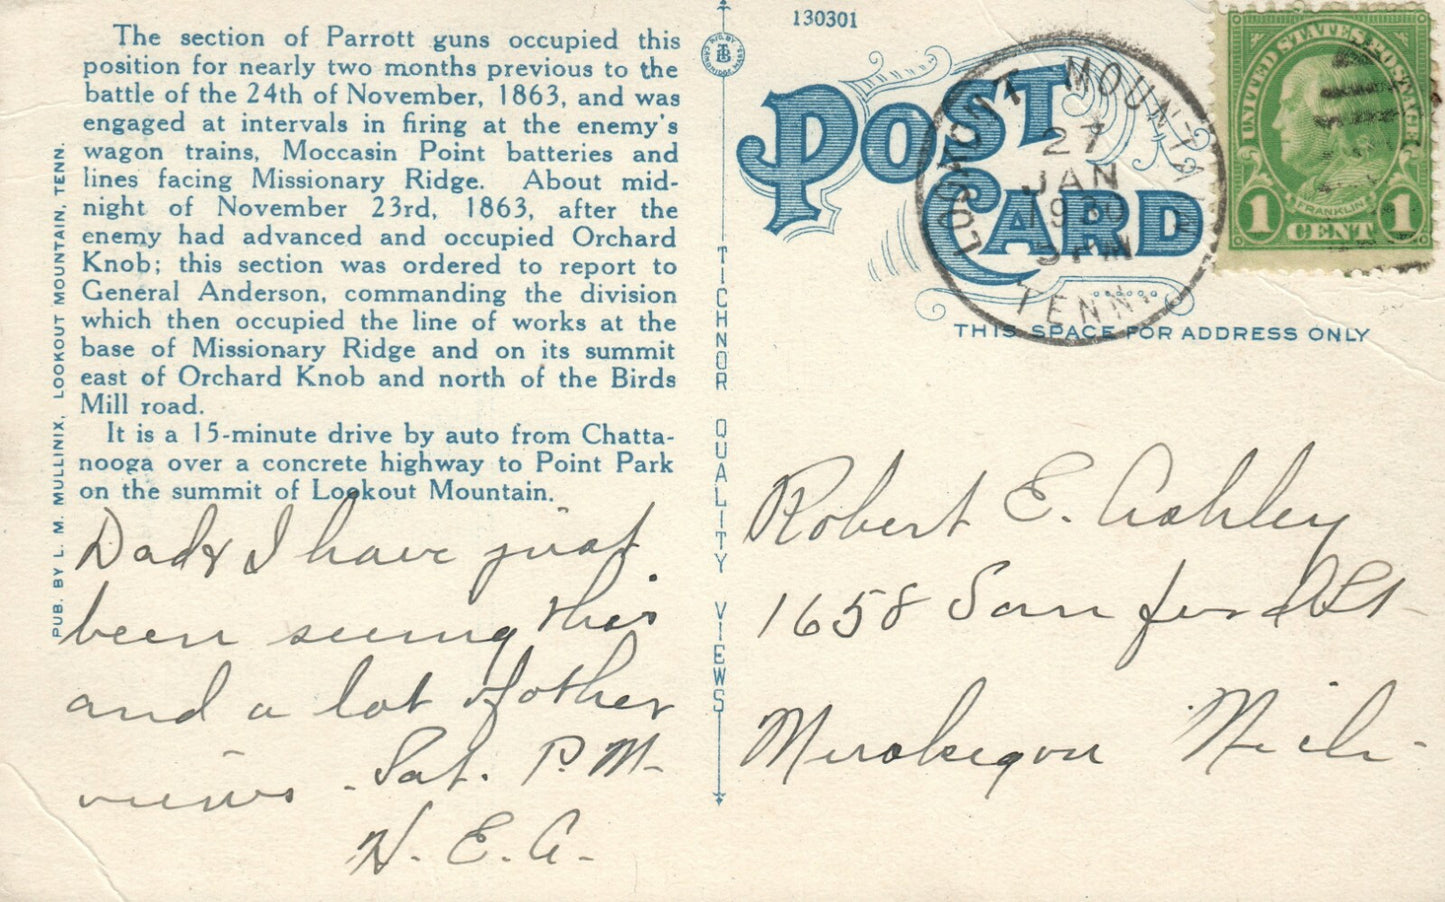 The section of Parrott guns occupied this
position for nearly two months previous to the
battle of the 24th of November, 1863, and was
engaged at intervals in firing at the enemy's
wagon trains, Moccasin Point batteries and
lines facing Missionary Ridge. About mid-
night of November 23rd, 1863, after the
enemy had advanced and occupied Orchard
Knob; this section was ordered to report to
General Anderson, commanding the division
which then occupied the line of works at the
base of Missionary Ridge and on its summit
east of Orchard Knob and north of the Birds
Mill road.
It is a 15-minute drive by auto from Chatta-
nooga over a concrete highway to Point Park
on the summit of Lookout Mountain.
PUB. BY L. M. MULLINIX, LOOKOUT MOUNTAIN, TENN.
Dad & I have just
been seeing this
and a lot of other
views. Sat. P.M.
H. E. A.
TICHNOR QUALITY VIEWS
130301
POST
CARD
THIS SPACE FOR ADDRESS ONLY
LOOKOUT MOUNTAIN
27
JAN
1930
TENN.
UNITED STATES POSTAGE
FRANKLIN
1 CENT 1
Robert E. Ashley
1658 Sanford St
Muskegon Mich